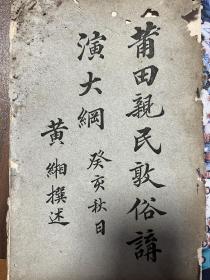 莆田親民敦俗講
演大綱 癸亥秋日
黄緗撰述